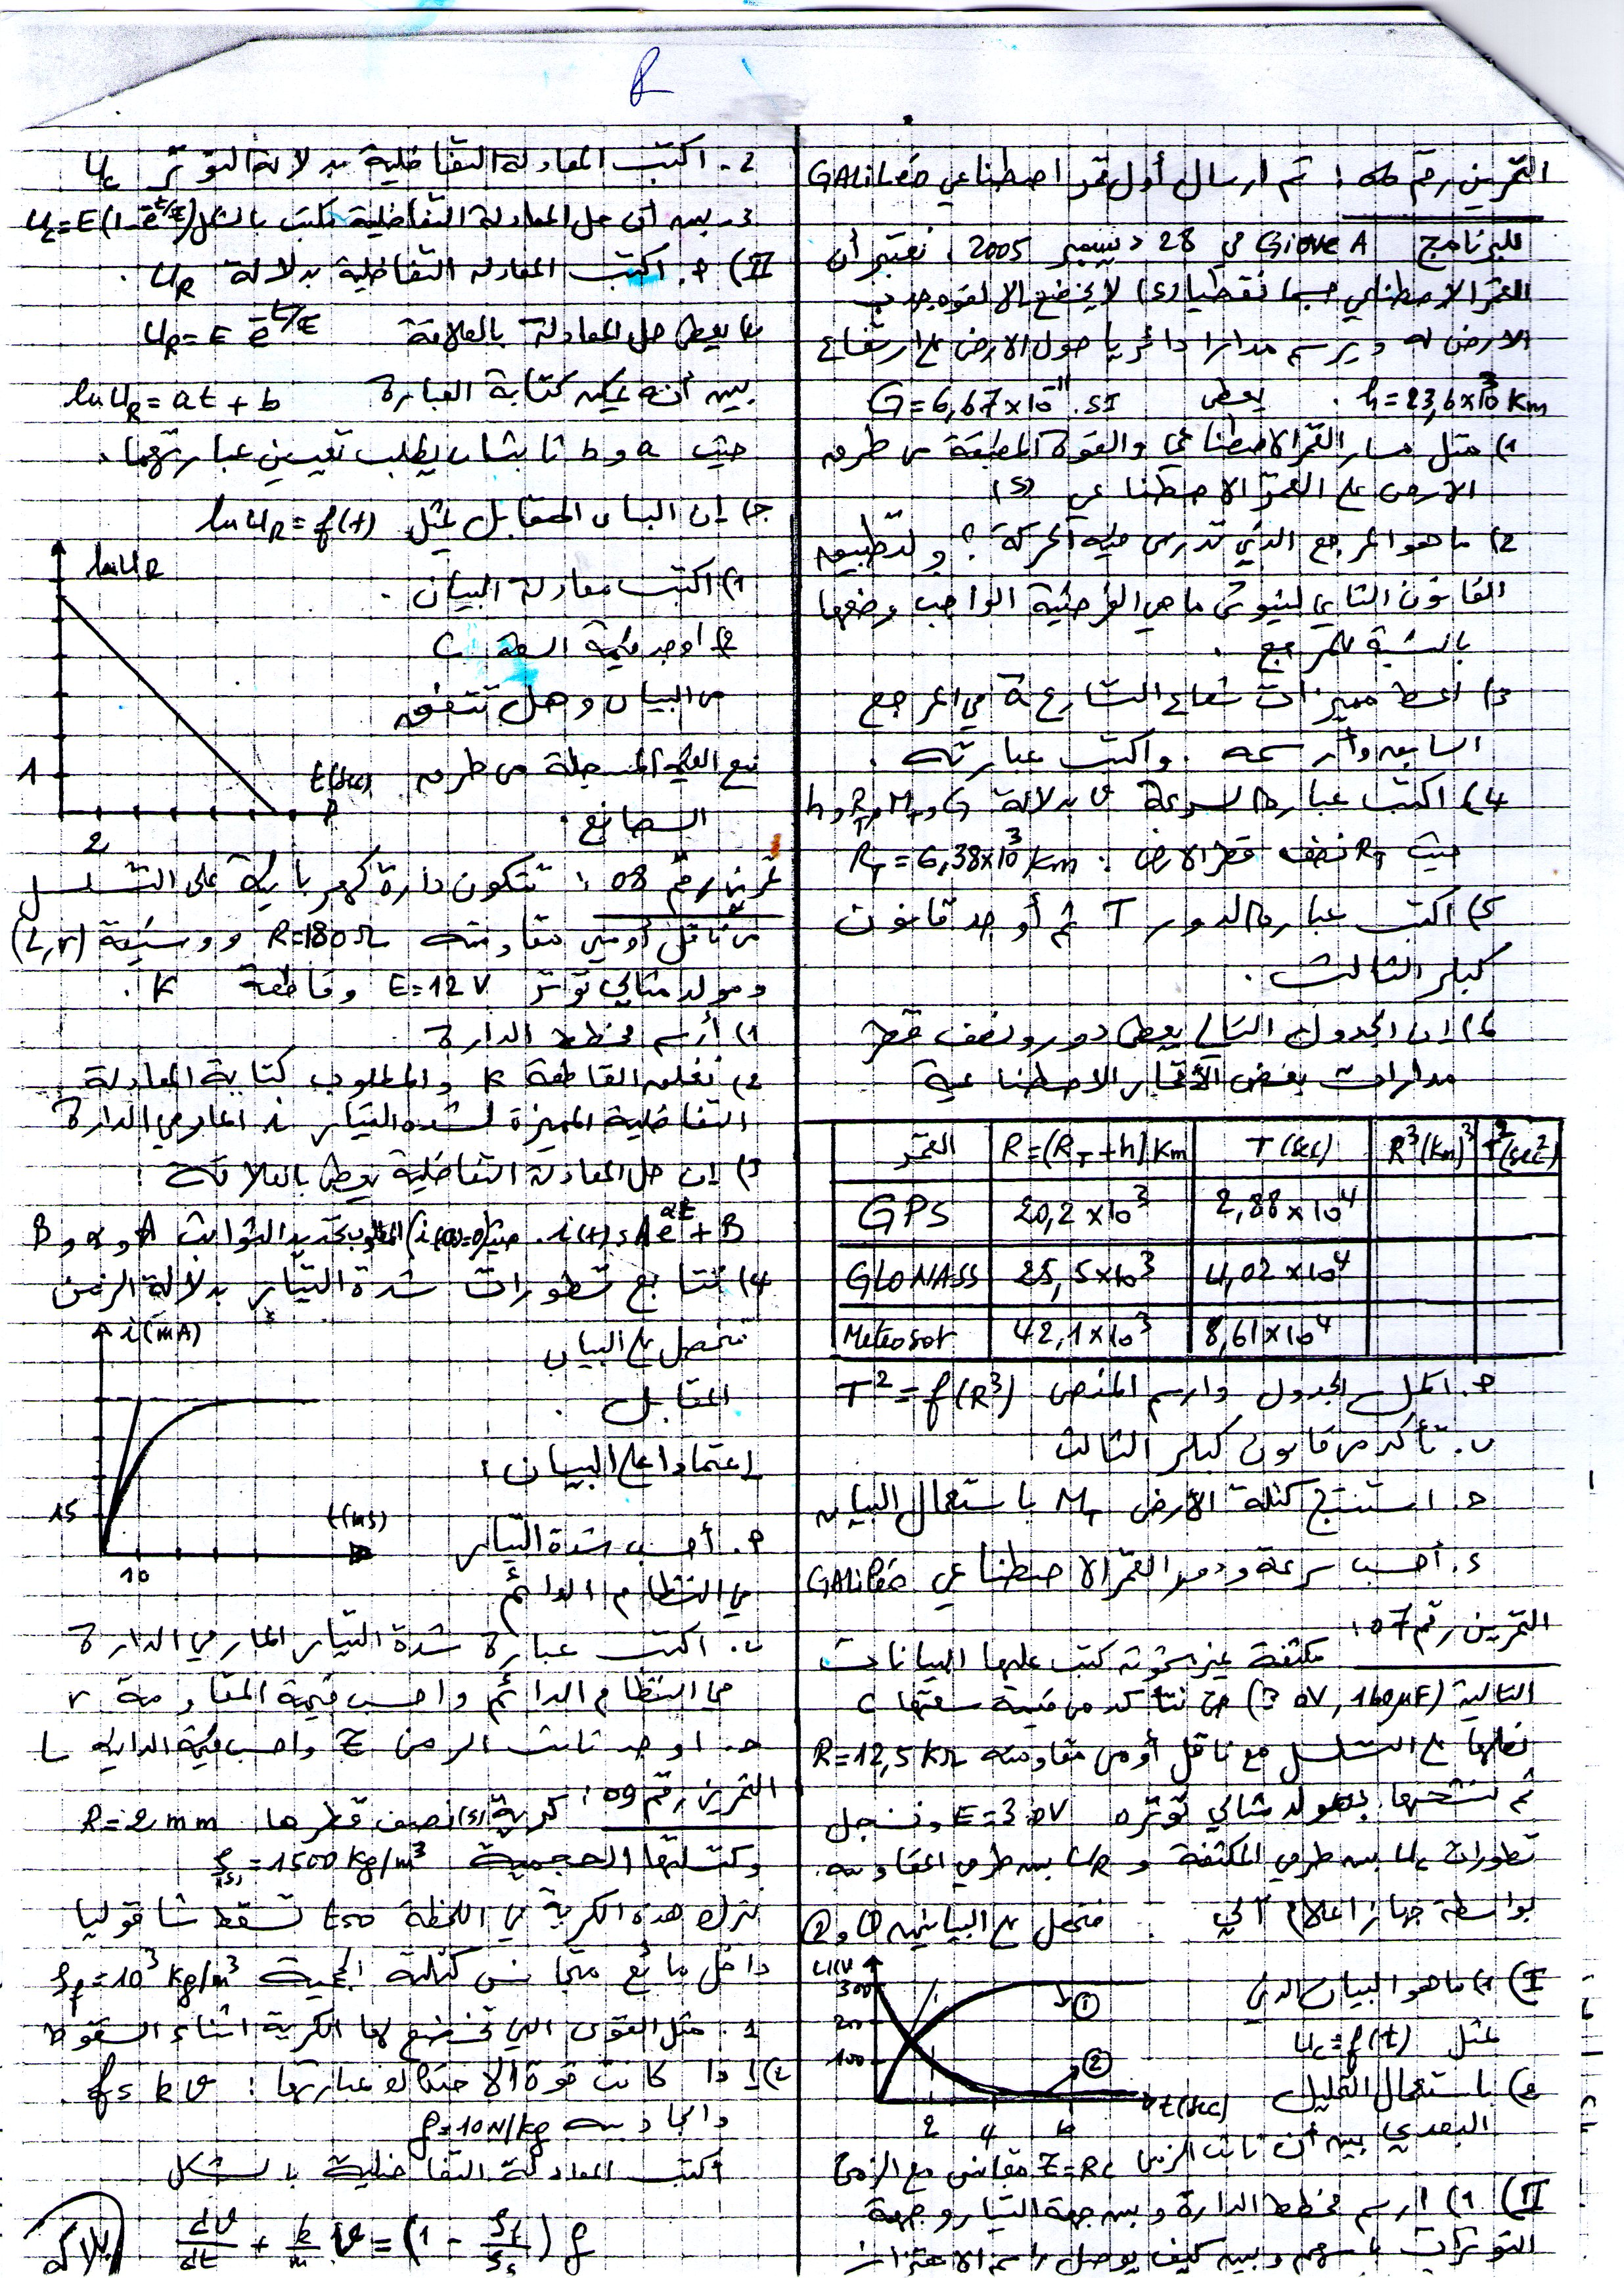 التمرين رقم 06 : تم ارسال أول قمر اصطناعي GALiLéo
للبرنامج GiOVE A في 28 ديسمبر 2005 . نعتبر أن
القمر الاصطناعي جسما نقطيا (S) لا يخضع إلا لقوة جذب
الارض له ويرسم مدارا دائريا حول الارض على ارتفاع
h = 23,6×10³ Km . يعطى G = 6,67×10⁻¹¹ .SI
1) مثل مسار القمر الاصطناعي والقوة المطبقة من طرف
الارض على القمر الاصطناعي (S)
2) ما هو المرجع الذي تدرس فيه الحركة ؟ و لتطبيق
القانون الثاني لنيوتن ما هي الفرضية الواجب وضعها
بالنسبة للمرجع .
3) اعط مميزات شعاع التسارع a في المرجع
السابق وأرسمه . واكتب عبارته .
4) اكتب عبارة السرعة v بدلالة G و M_T و R_T و h
حيث R_T نصف قطر الارض : R_T = 6,38×10³ Km
5) اكتب عبارة الدور T ثم أوجد قانون
كبلر الثالث .
6) إن الجدول التالي يعطي دور ونصف قطر
مدارات بعض الأقمار الاصطناعية
القمر R=(R_T+h) Km T (sec) R³(Km)³ T²(sec²)
GPS 20,2×10³ 2,88×10⁴
GLONASS 25,5×10³ 4,02×10⁴
Meteosat 42,1×10³ 8,61×10⁴
أ. اكمل الجدول وارسم المنحنى T² = f(R³)
ب. تأكد من قانون كبلر الثالث
ج. استنتج كتلة الأرض M_T باستعمال البيان
د. أحسب سرعة ودور القمر الاصطناعي GALiléo
التمرين رقم 07 :
مكثفة غير مشحونة كتب عليها البيانات
التالية (3 0V, 160µF) حتى نتأكد من قيمة سعتها C
نصلها على التسلسل مع ناقل أومي مقاومته R=12,5 KΩ
ثم نشحنها بمولد مثالي توتره E=3 0V ونسجل
تطورات Uc بين طرفي المكثفة و UR بين طرفي المقاومة
بواسطة جهاز اعلام آلي . فنحصل على البيانين ① و ②
U(V)
300
200
100
①
②
2 4 6
t(sec)
I) 1) ما هو البيان الذي
يمثل Uc=f(t)
2) باستعمال التحليل
البعدي بين أن ثابت الزمن τ=RC متجانس مع الزمن
II) 1) ارسم مخطط الدارة وبين جهة التيار وجهة
التوترات باسهم وبين كيف يوصل راسم الاهتزاز
2. اكتب المعادلة التفاضلية بدلالة التوتر Uc
3. بين أن حل المعادلة التفاضلية تكتب بالشكل Uc=E(1-e^(-t/τ))
II) أ. اكتب المعادلة التفاضلية بدلالة UR .
ب) يعطى حل المعادلة بالعلاقة UR = E e^(-t/τ)
بين أنه يمكن كتابة العبارة lnUR = at + b
حيث a و b ثابتان يطلب تعيين عبارتهما .
ج) إن البيان المقابل يمثل lnUR = f(t)
lnUR
1
2
t(sec)
1) اكتب معادلة البيان .
2) اوجد قيمة السعة C
من البيان وهل تتفق
مع القيمة المسجلة من طرف
الصانع .
تمرين رقم 08 : تتكون دارة كهربائية على التسلسل
من ناقل أومي مقاومته R=180Ω ووشيعة (L,r)
ومولد مثالي توتر E=12 V وقاطعة K .
1) أرسم مخطط الدارة
2) نغلق القاطعة K والمطلوب كتابة المعادلة
التفاضلية المميزة لشدة التيار i المار في الدارة
3) إن حل المعادلة التفاضلية يعطى بالعلاقة :
i(t) = A e^(αt) + B . حيث (i(0)=0) المطلوب تحديد الثوابت A و α و B
4) نتابع تطورات شدة التيار بدلالة الزمن
فنحصل على البيان
المقابل .
i(mA)
15
10
t(ms)
إعتمادا على البيان :
أ. أحسب شدة التيار
في النظام الدائم
ب. اكتب عبارة شدة التيار المار في الدارة
في النظام الدائم واحسب قيمة المقاومة r
ج. اوجد ثابت الزمن τ واحسب قيمة الذاتية L
التمرين رقم 09 : كرية (S) نصف قطرها R=2 mm
وكتلتها الحجمية ρ_s = 1500 Kg/m³
نترك هذه الكرية في اللحظة t=0 تسقط شاقوليا
داخل مائع متجانس كتلته الحجمية ρ_f = 10³ Kg/m³
1. مثل القوى التي تخضع لها الكرية اثناء السقوط
2) إذا كانت قوة الاحتكاك عبارتها : f = k v .
والجاذبية g=10N/kg
اكتب المعادلة التفاضلية بالشكل
dv/dt + k/m v = (1 - ρ_f/ρ_s) g